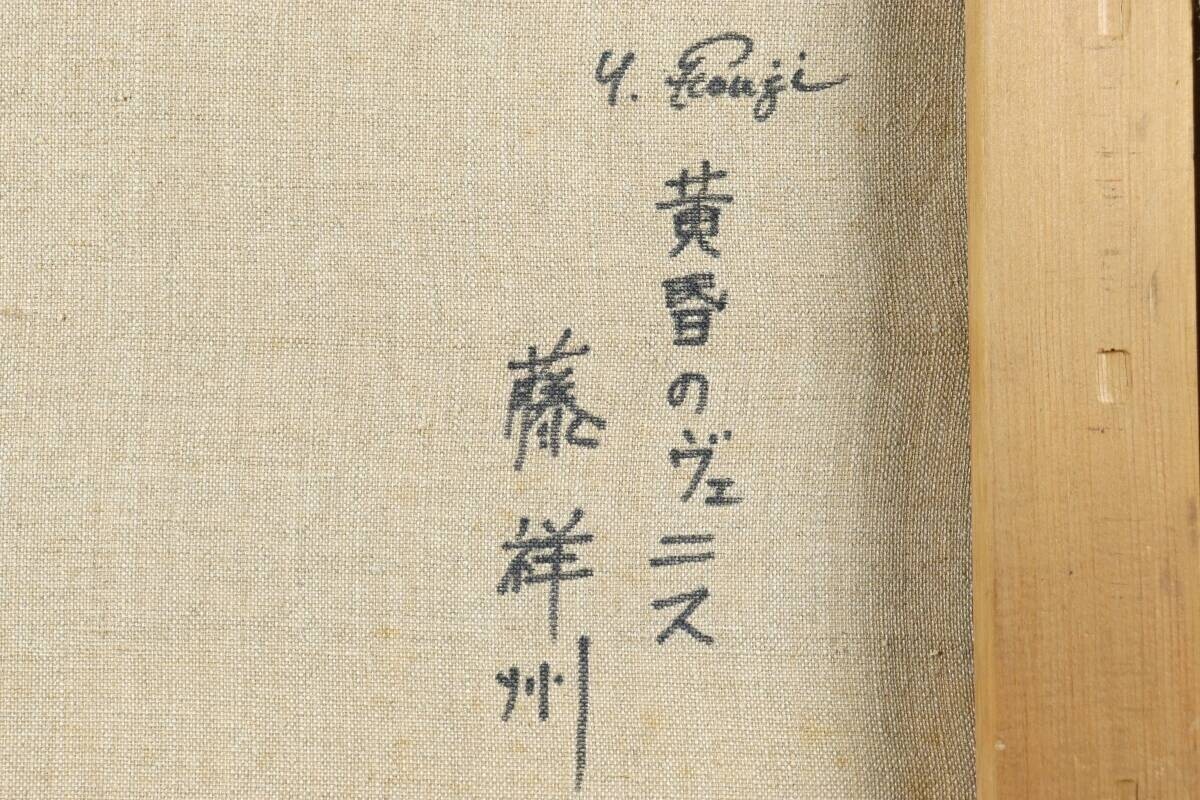 Y. Fouji
黄昏のヴェニス
藤祥州